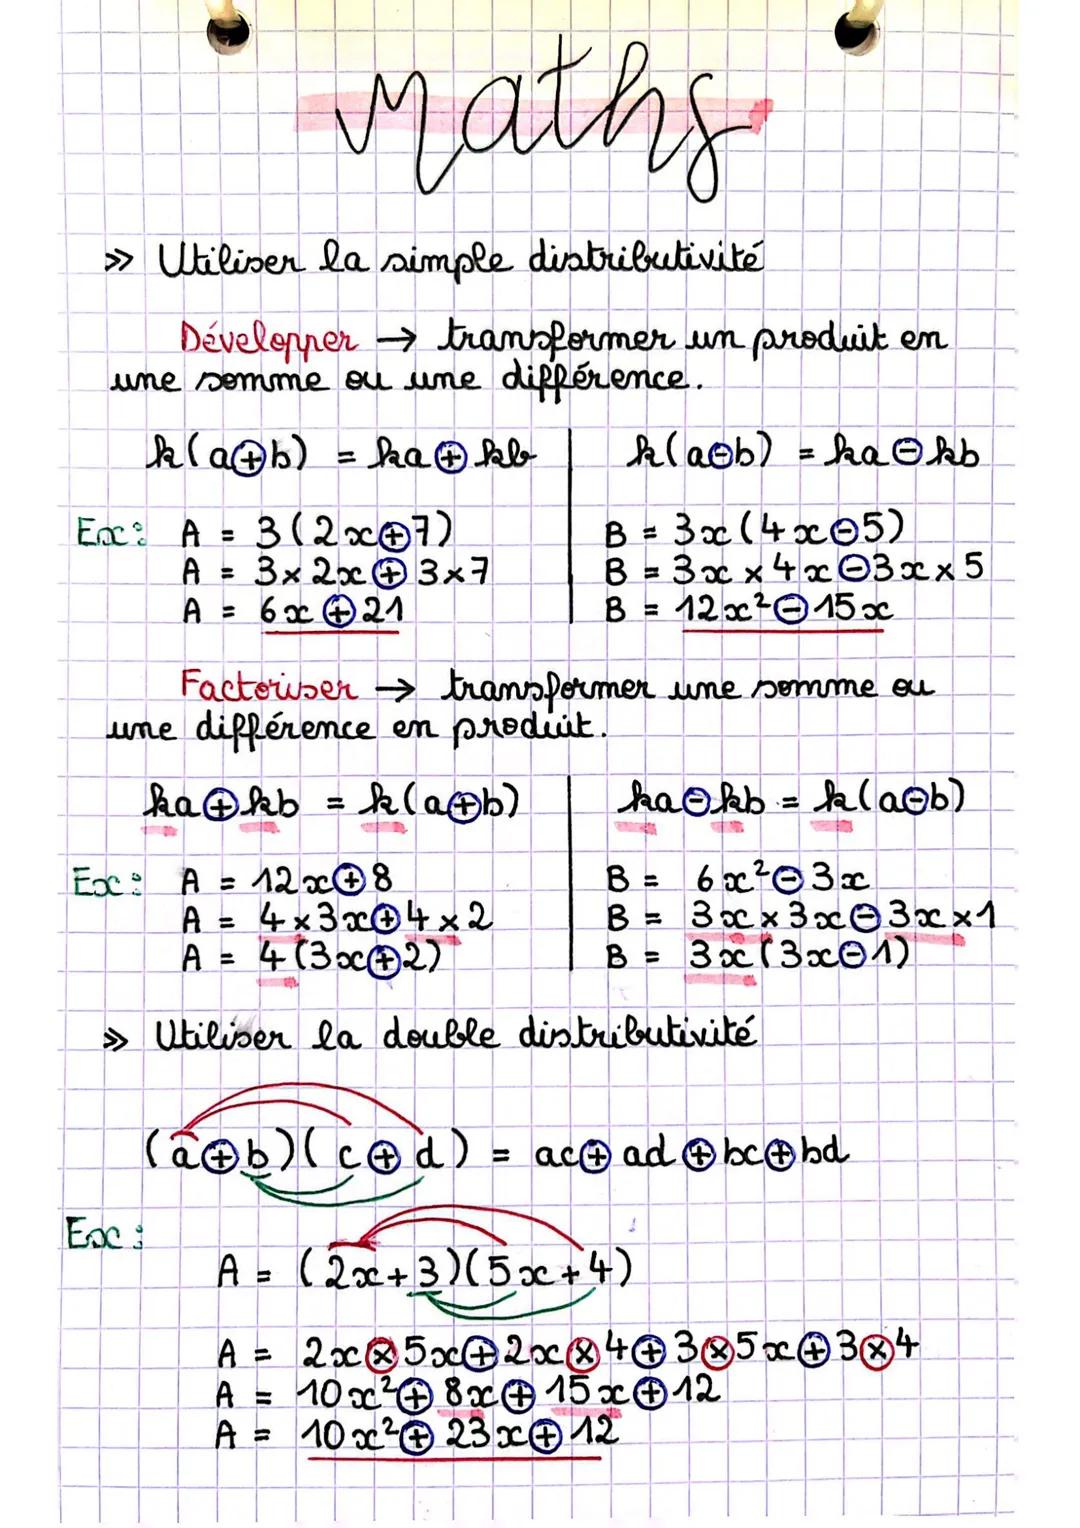 Maths
>> Utiliser la simple distributivité
Développer → transformer un produit en
une somme ou une différence.
k(a⊕b) = ka⊕kb
k(a⊖b) = ka⊖kb
Ex: A = 3(2x⊕7)
A = 3×2x⊕3×7
A = 6x⊕21
B = 3x(4x⊖5)
B = 3x×4x⊖3x×5
B = 12x²⊖15x
Factoriser → transformer une somme ou
une différence en produit.
ka⊕kb = k(a⊕b)
ka⊖kb = k(a⊖b)
Ex: A = 12x⊕8
A = 4×3x⊕4×2
A = 4(3x⊕2)
B = 6x²⊖3x
B = 3x×3x⊖3x×1
B = 3x(3x⊖1)
>> Utiliser la double distributivité
(a⊕b)(c⊕d) = ac⊕ad⊕bc⊕bd
Ex:
A = (2x+3)(5x+4)
A = 2x⊗5x⊕2x⊗4⊕3⊗5x⊕3⊗4
A = 10x²⊕8x⊕15x⊕12
A = 10x²⊕23x⊕12